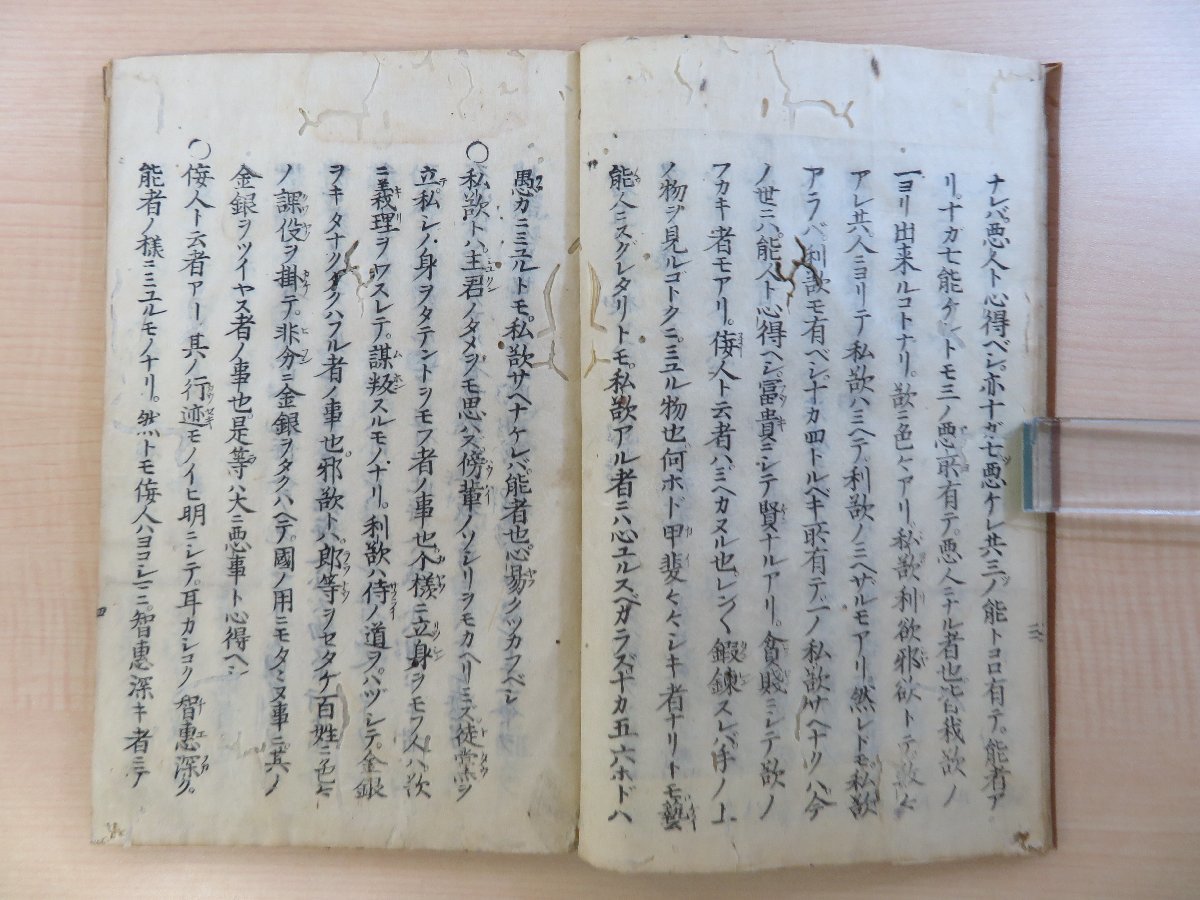 ナレバ。悪人ト心得ベシ。亦十ガ七悪ケレ共三ノ能トコロ有テ。能者ア
リ。十カ七能ケレトモ三ノ悪所有テ。悪人ニナル者也。皆我欲ノ
一ヨリ出来ルコトナリ。欲ニ色々アリ。私欲利欲邪欲トテ
アレ共。人ニヨリテ私欲ハミヘテ利欲ノミヘザルモアリ。然レドモ。私欲
アラバ。利欲モ有ベシ。十カ四トルベキ所有テ。一ノ私欲サヘナクハ今
ノ世ニハ。能人ト心得ヘシ。冨貴ニシテ賢ナルアリ。貧賤ニシテ欲ノ
フカキ者モアリ。侫人ト云者ハ。ミヘカヌル也。鍛錬スレバ手ノ上
ノ物ヲ見ルゴトクニ。ミユル物也。何ホド甲斐々々シキ者ナリトモ。藝
能人ニスグレタリトモ。私欲アル者ニハ心ユルスベカラズ。十カ五六ホドハ
愚カニミユルトモ。私欲サヘナケレバ。能者也。心易クツカフベシ
○私欲トハ。主君ノタメヲモ思ハズ。傍輩ノソシリヲモカヘリミズ。徒黨ヲ
立。私シノ身ヲタテントヲモフ者ノ事也。个樣ニ立身ヲモフ人ハ。次
ニ義理ヲワスレテ。謀叛スルモノナリ。利欲ハ侍ノ道ヲハヅレテ。金銀
ヲキタナクタクハフル者ノ事也。邪欲トハ。郎等ヲセタケ百姓ニ色々
ノ課役ヲ掛テ。非分ニ金銀ヲタクハヘテ。國ノ用ニモタヽヌ事ニ其ノ
金銀ヲツイヤス者ノ事也。是等ハ大ニ悪事ト心得ヘシ
○侫人ト云者アリ。其ノ行迹モノイヒ明ニシテ。耳カシコク智惠深ク。
能者ノ樣ニミユルモノナリ。然トモ侫人ハヨコシマニ。智惠深キ者ニテ